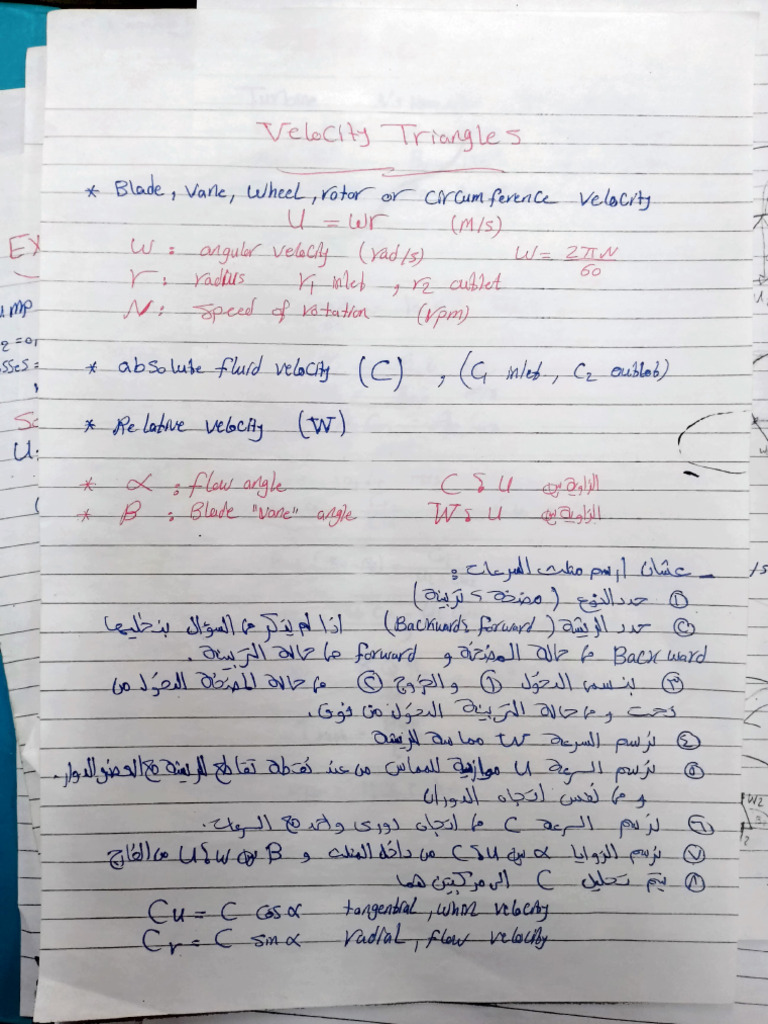 Velocity Triangles
* Blade, Vane, Wheel, rotor or circumference velocity
U = wr (m/s)
W: angular velocity (rad/s) W = 2πN/60
r: radius r1 inlet, r2 outlet
N: speed of rotation (rpm)
* absolute fluid velocity (C), (C1 inlet, C2 outlet)
* Relative velocity (W)
* α: flow angle C و U الزاوية بين
* β: Blade "vane" angle W و U الزاوية بين
- عشان ارسم مثلث السرعات:
① حدد النوع (مضخة و تربينة)
② حدد الريشة (Backward, forward) اذا لم يذكر في السؤال بنخليها
Backward في حالة المضخة و forward في حالة التربينة.
③ بنسمي الدخول ① والخروج ② في حالة المضخة الدخول من
تحت و في حالة التربينة الدخول من فوق.
④ نرسم السرعة W مماسة للريشة
⑤ نرسم السرعة U موازية للمماس من عند نقطة تقاطع الريشة مع العضو الدوار.
و في نفس اتجاه الدوران
⑥ نرسم السرعة C في اتجاه دورى واحد مع السرعات.
⑦ نرسم الزوايا α بين U و C من داخل المثلث و β بين W و U من الخارج
⑧ يتم تحليل C الى مركبتين هما
Cu = C cosα tangential, whirl velocity
Cr = C sinα radial, flow velocity
EX
ump
Sses =
U:
W2